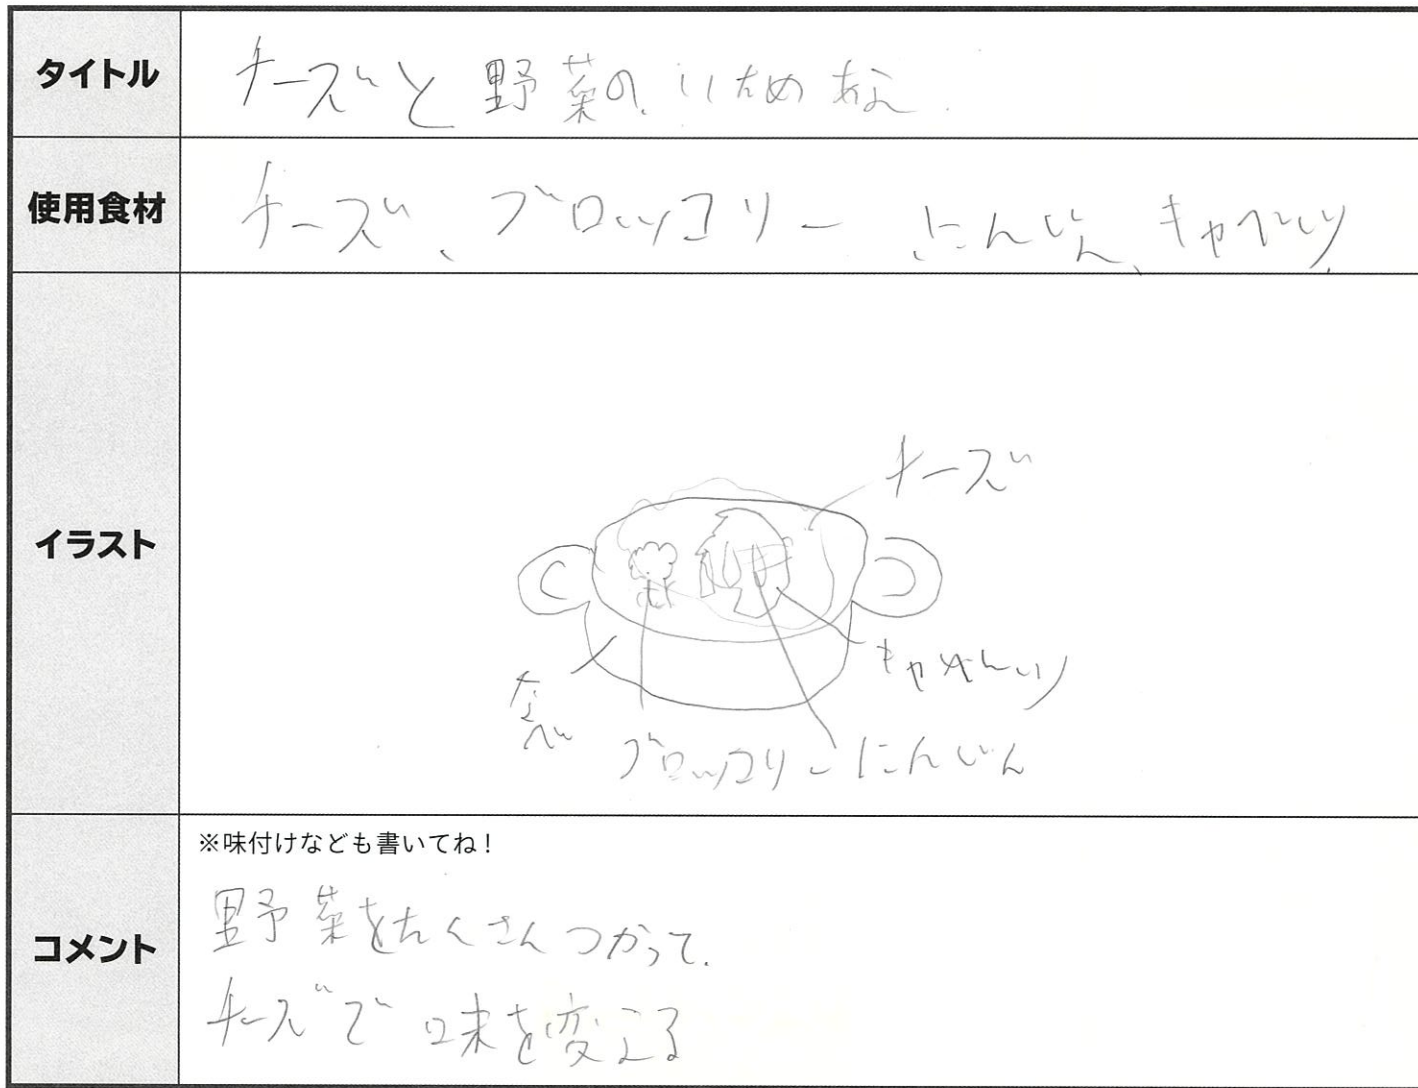 タイトル
チーズと野菜のいためなべ
使用食材
チーズ、ブロッコリー、にんじん、キャベツ
イラスト
チーズ
キャベツ
なべ
ブロッコリー
にんじん
コメント
※味付けなども書いてね!
野菜をたくさんつかって、
チーズで味を変える